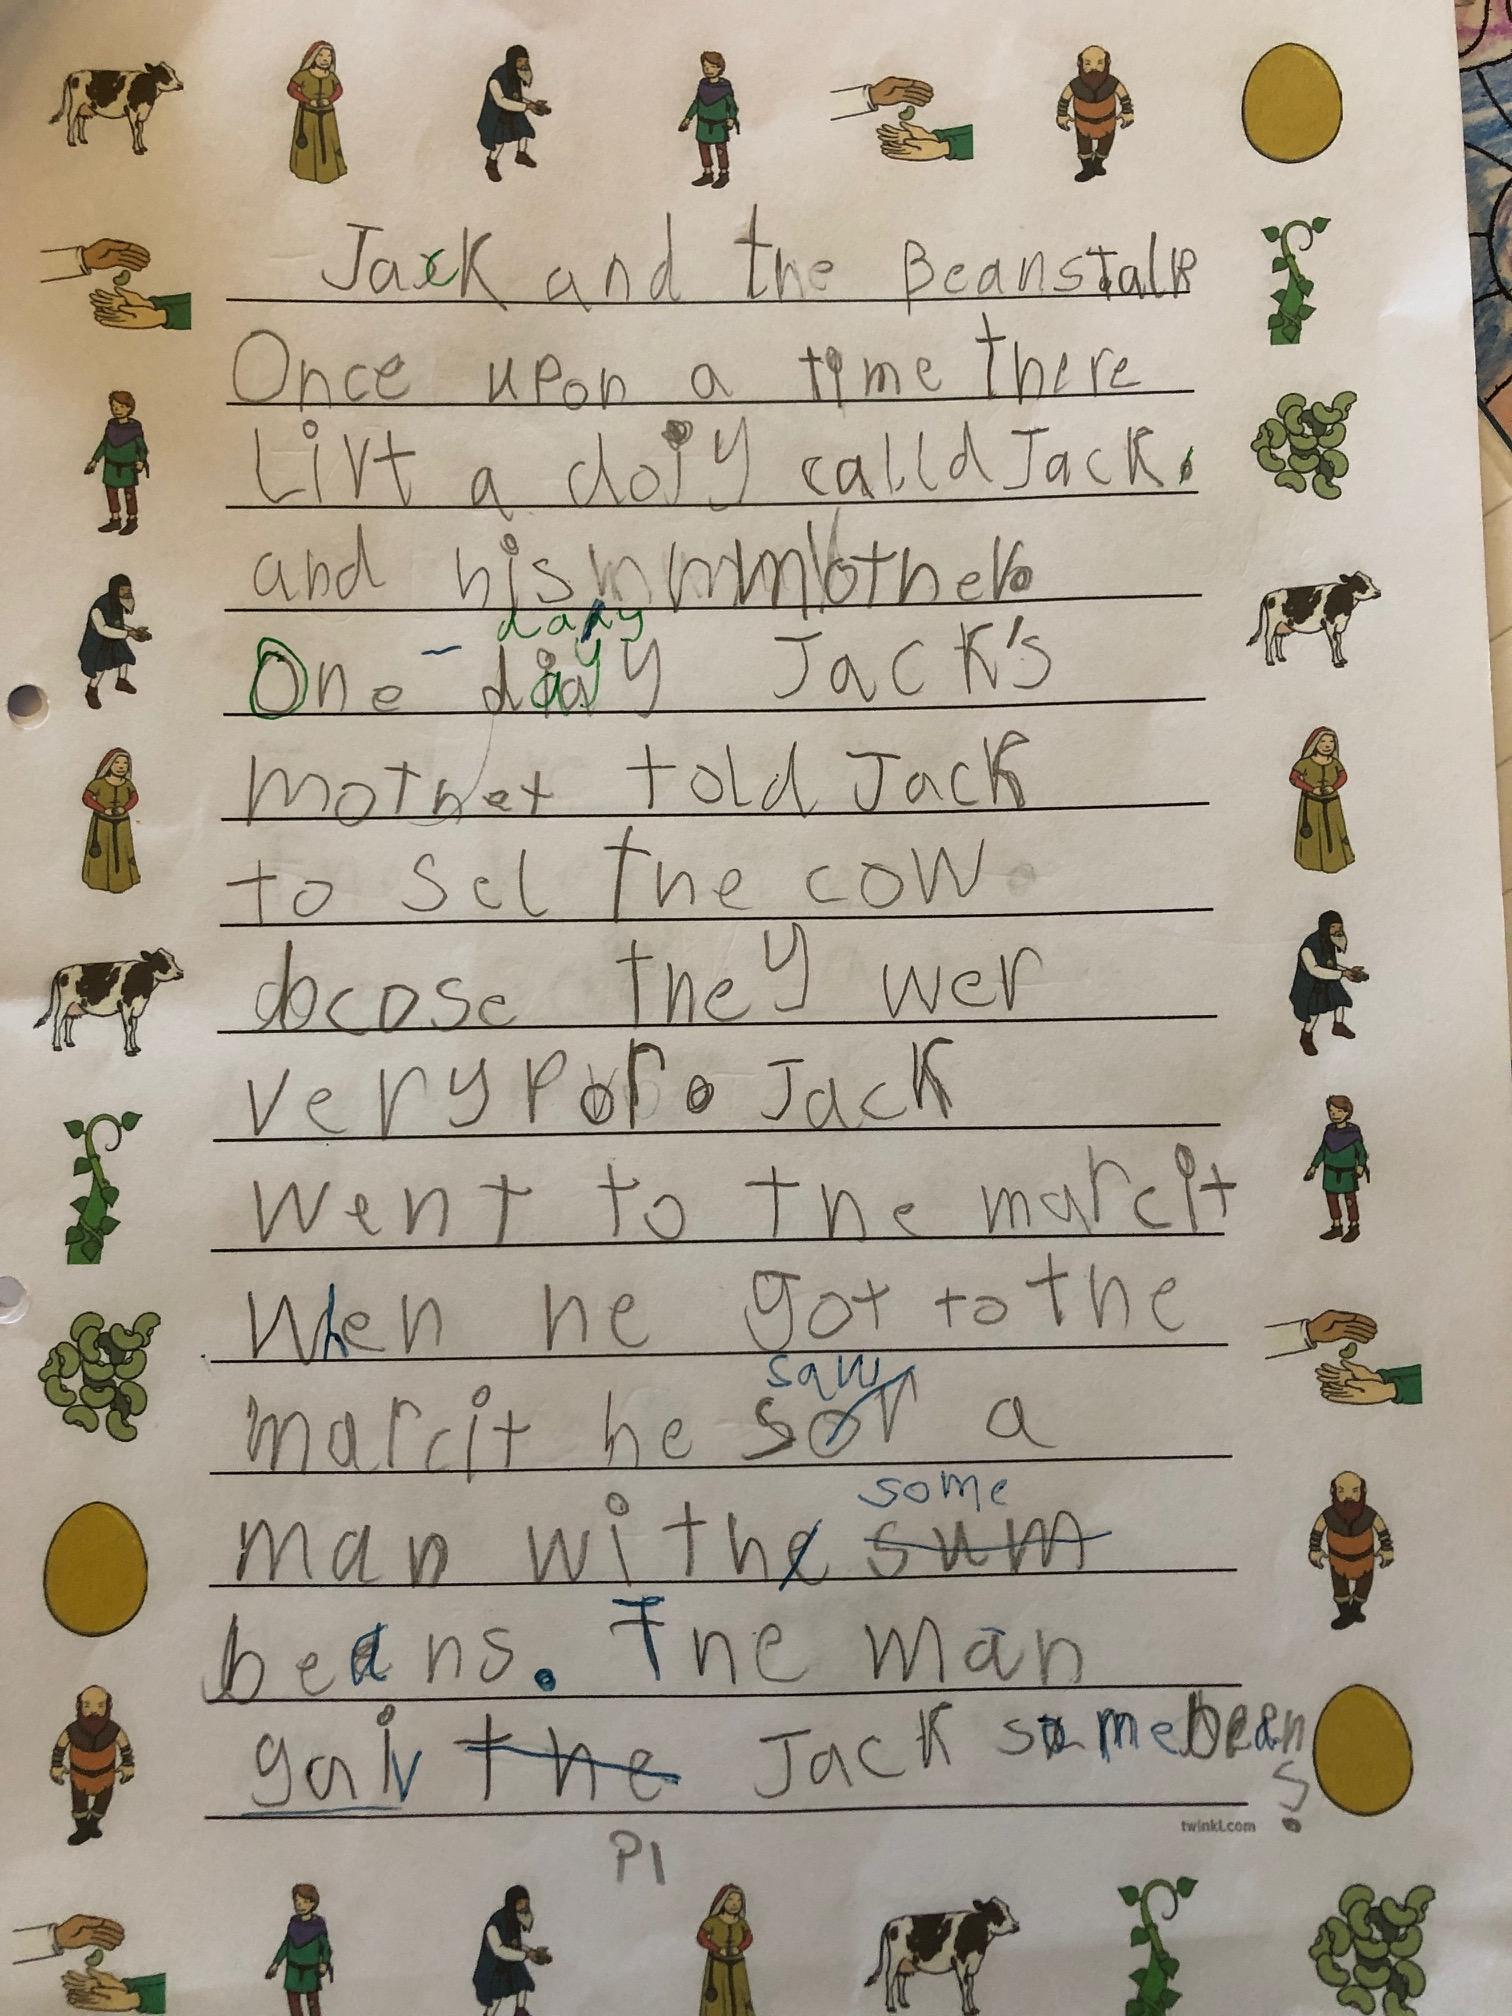 Jack and the Beanstalk
Once upon a time there
Livt a doiy calld Jack.
and his mother.
dady
One day Jack's
mother told Jack
to sel the cow
bcose they wer
very por. Jack
went to the marcit
When he got to the
saw
marcit he sor a
some
man withe sum
beans. The man
gaiv the Jack some beans.
twinkl.com
P1